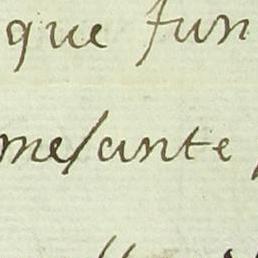 que fun
me/ante